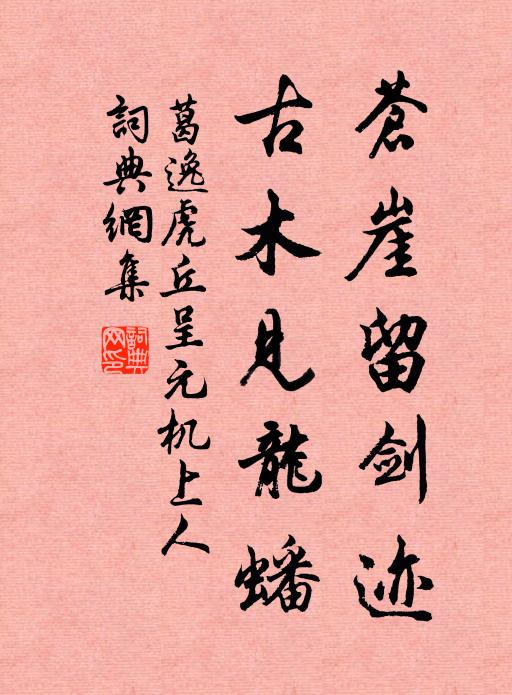 苍崖留剑迹
古木见龍蟠
葛逸虎丘呈元机上人
詞典網集
詞典網印